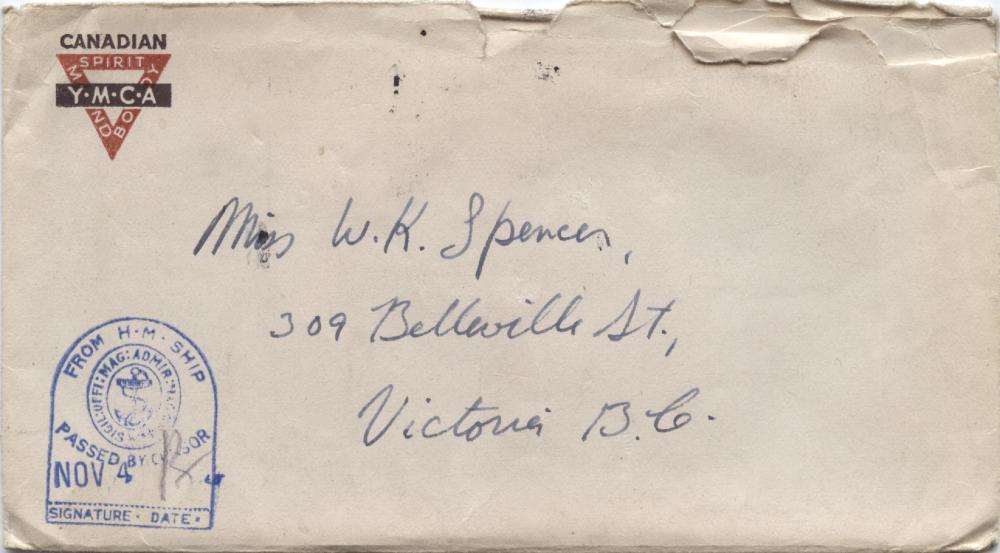 CANADIAN
SPIRIT
MIND
BODY
Y·M·C·A
Miss W.K. Spencer,
309 Belleville St.,
Victoria B.C.
FROM H·M·SHIP
PASSED BY CENSOR
NOV 4
SIGNATURE · DATE